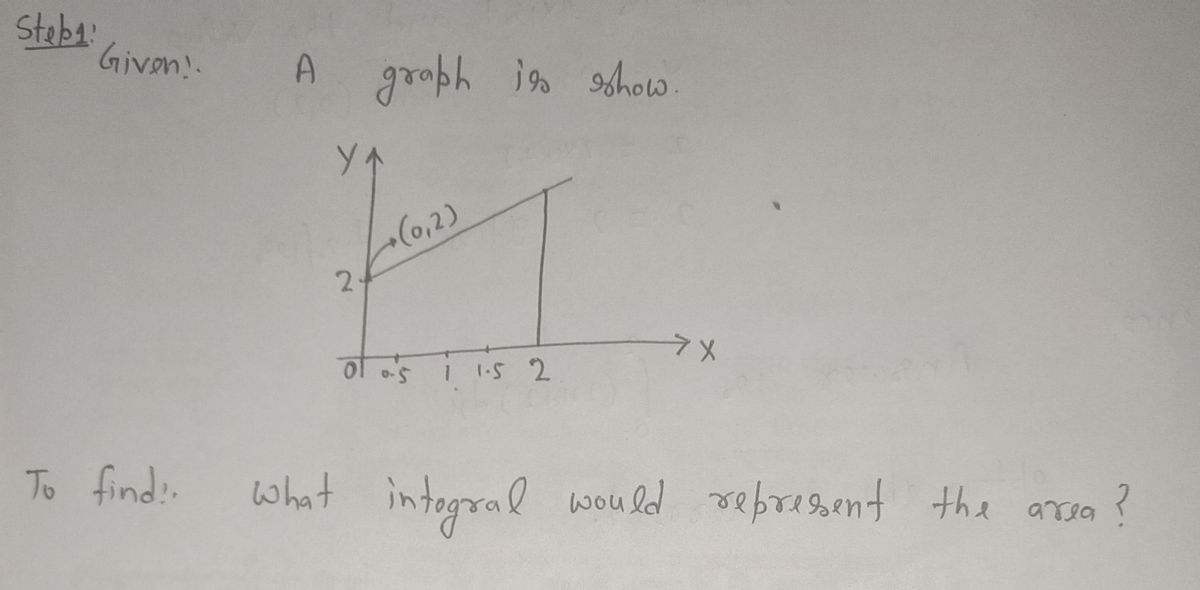 Step1:
Given:. A graph is show.
Y
(0,2)
2
X
0 0.5 1 1.5 2
To find:. What integral would represent the area?